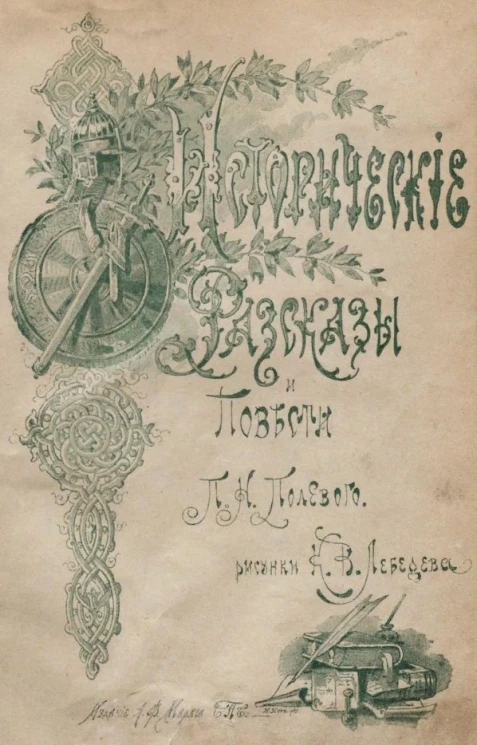 Историческіе
Разсказы
и
Повѣсти
П. Н. Полевого.
рисунки К. В. Лебедева
Изданіе А. Ф. Маркса СПБ